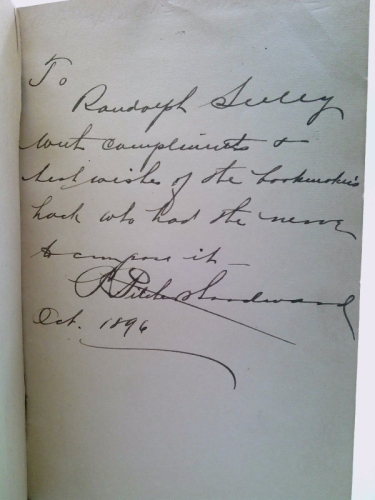 To
Randolph Seeley
with compliments &
best wishes of the bookmaker's
hack who had the nerve
to compose it —
R. Pitcher Woodward
Oct. 1896